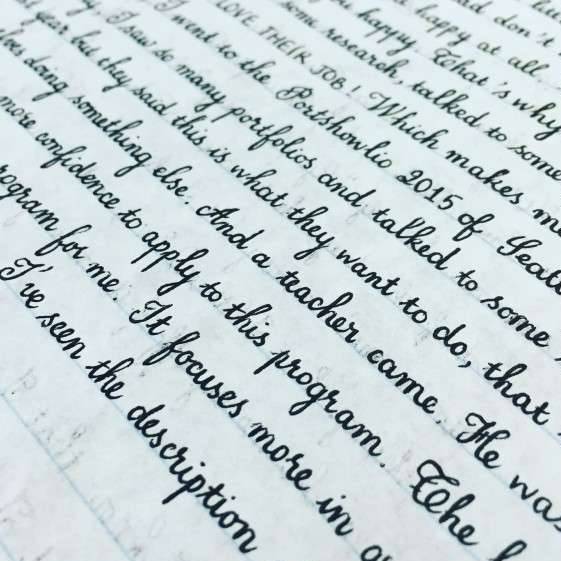 and don't
happy at all
you happy. That's why
some research, talked to some
LOVE THEIR JOB! Which makes me
I went to the Portshowlio 2015 of Seattl
I saw so many portfolios and talked to some
year but they said this is what they want to do, that
doing something else. And a teacher came. He was
more confidence to apply to this program. The
program for me. It focuses more in
I've seen the description